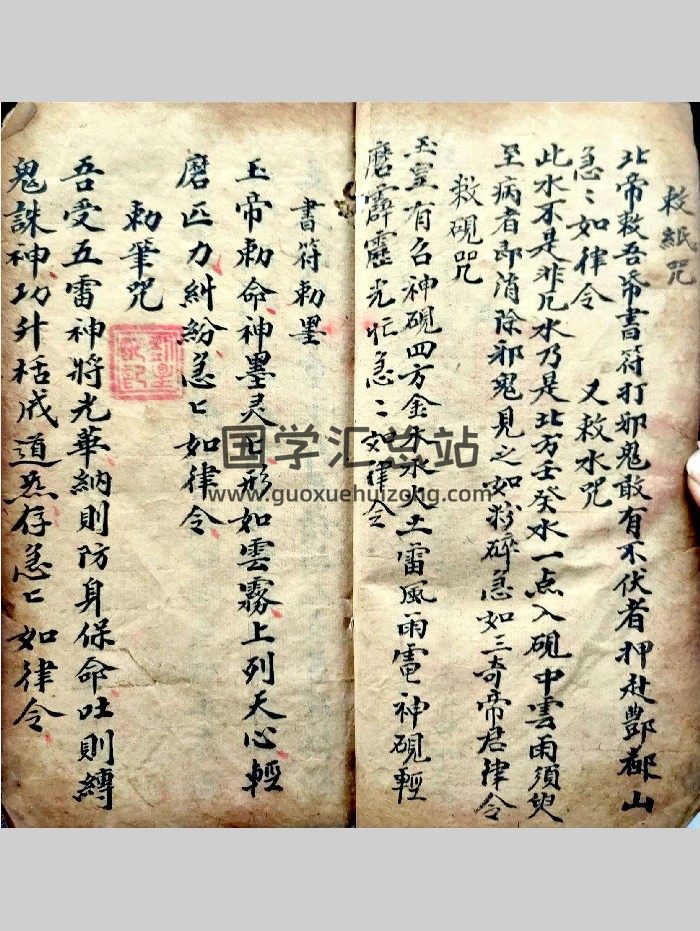 敕紙咒
北帝敕吾帋書符打邪鬼敢有不伏者押赴酆都山
急〻如律令 又敕水咒
此水不是非凡水乃是北方壬癸水一点入硯中雲雨須臾
至病者即消除邪鬼見之如粉碎急如三奇帝君律令
敕硯咒
玉皇有召神硯四方金木水火土雷風雨電神硯輕
磨霹靂光芒急〻如律令
書符勅墨
玉帝勅命神墨灵〻形如雲霧上列天心輕
磨匹力糾紛急〻如律令
勅筆咒
吾受五雷神將光華納則防身保命吐則縛
鬼誅神功升括成道炁存急〻如律令
国学汇总站
www.guoxuehuizong.com